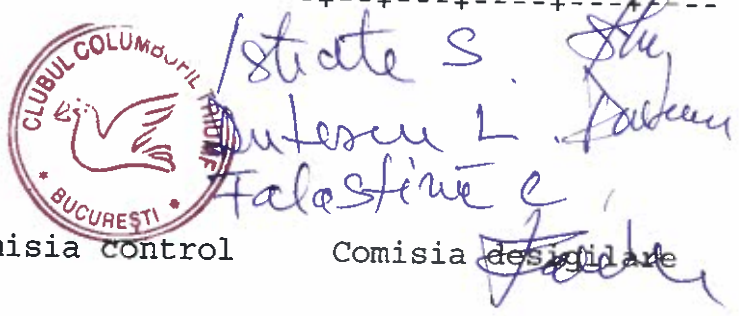 CLUBUL COLUMBOFIL TRIUMF
* BUCUREȘTI *
Istrate S.
Dutescu L.
Falastînă C
misia control Comisia desigilare